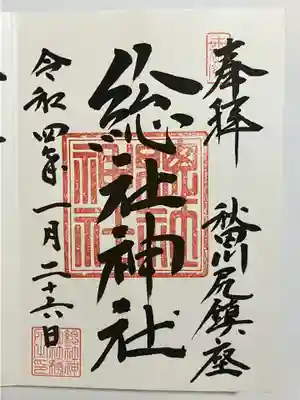 奉拝
秋田川尻鎮座
総社神社
令和四年一月二十六日